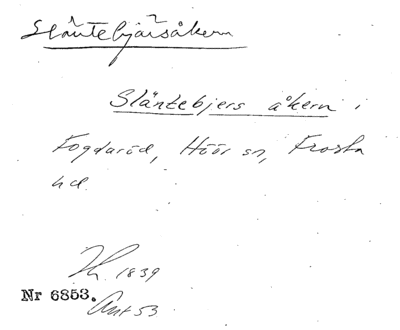 Släntebjärsåkern
Släntebjers åkern i
Fogdaröd, Höör sn, Frosta
hd.
1839
Nr 6853. Ant 53